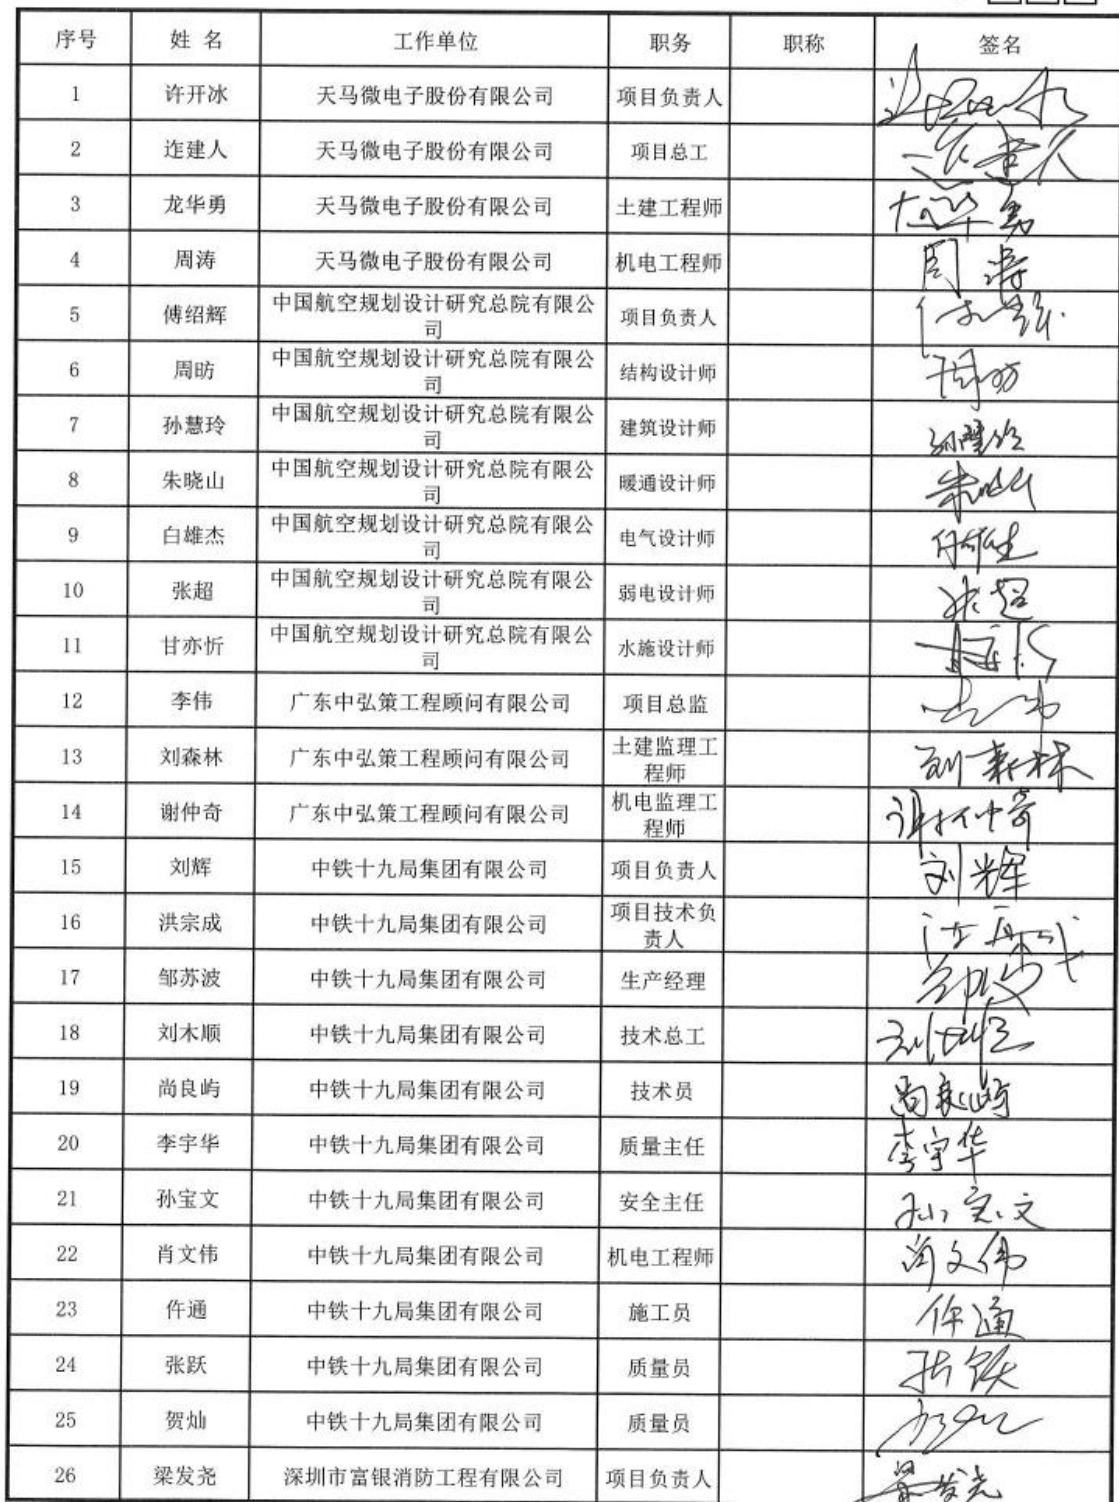 序号 姓 名 工作单位 职务 职称 签名
1 许开冰 天马微电子股份有限公司 项目负责人
2 迮建人 天马微电子股份有限公司 项目总工
3 龙华勇 天马微电子股份有限公司 土建工程师
4 周涛 天马微电子股份有限公司 机电工程师 周涛
5 傅绍辉 中国航空规划设计研究总院有限公
司 项目负责人
6 周昉 中国航空规划设计研究总院有限公
司 结构设计师 周昉
7 孙慧玲 中国航空规划设计研究总院有限公
司 建筑设计师 孙慧玲
8 朱晓山 中国航空规划设计研究总院有限公
司 暖通设计师 朱晓山
9 白雄杰 中国航空规划设计研究总院有限公
司 电气设计师
10 张超 中国航空规划设计研究总院有限公
司 弱电设计师 张超
11 甘亦忻 中国航空规划设计研究总院有限公
司 水施设计师
12 李伟 广东中弘策工程顾问有限公司 项目总监
13 刘森林 广东中弘策工程顾问有限公司 土建监理工
程师 刘森林
14 谢仲奇 广东中弘策工程顾问有限公司 机电监理工
程师 谢仲奇
15 刘辉 中铁十九局集团有限公司 项目负责人 刘辉
16 洪宗成 中铁十九局集团有限公司 项目技术负
责人 洪宗成
17 邹苏波 中铁十九局集团有限公司 生产经理
18 刘木顺 中铁十九局集团有限公司 技术总工
19 尚良屿 中铁十九局集团有限公司 技术员 尚良屿
20 李宇华 中铁十九局集团有限公司 质量主任 李宇华
21 孙宝文 中铁十九局集团有限公司 安全主任 孙宝文
22 肖文伟 中铁十九局集团有限公司 机电工程师 肖文伟
23 仵通 中铁十九局集团有限公司 施工员 仵通
24 张跃 中铁十九局集团有限公司 质量员 张跃
25 贺灿 中铁十九局集团有限公司 质量员
26 梁发尧 深圳市富银消防工程有限公司 项目负责人 梁发尧